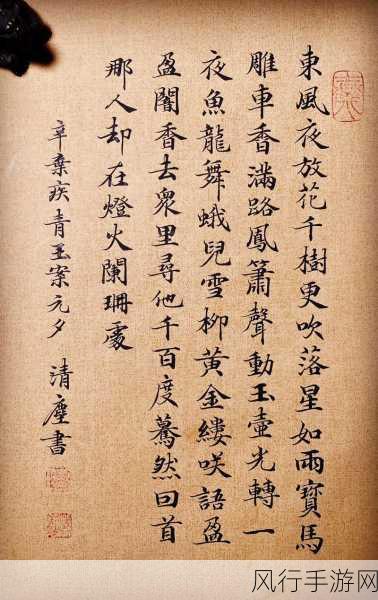 東風夜放花千樹更吹落星如雨寶馬
雕車香滿路鳳簫聲動玉壺光轉一
夜魚龍舞蛾兒雪柳黃金縷咲語盈
盈闇香去衆里尋他千百度驀然回首
那人却在燈火闌珊處
辛棄疾青玉案元夕
清塵書
风行手游网